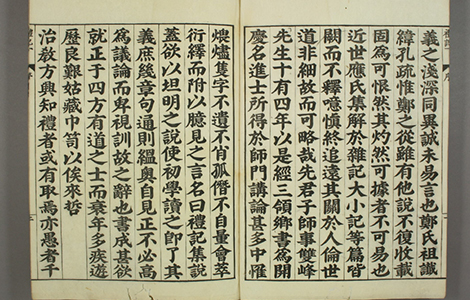 義之淺深同異誠未易言也鄭氏祖讖
緯孔疏惟鄭之從雖有他說不復收載
固為可恨然其灼然可據者不可易也
近世應氏集解於雜記大小記等篇皆
闕而不釋噫慎終追遠其關於人倫世
道非細故而可略哉先君子師事雙峰
先生十有四年以是經三領鄉書為開
慶名進士所得於師門講論甚多中罹
煨燼隻字不遺不肖孤僭不自量會萃
衍繹而附以臆見之言名曰禮記集說
蓋欲以坦明之說使初學讀之即了其
義庶幾章句通則縕奧自見正不必高
為議論而卑視訓故之辭也書成甚欲
就正于四方有道之士而衰年多疾遊
歷良艱姑藏巾笥以俟來哲
治教方興知禮者或有取焉亦愚者千